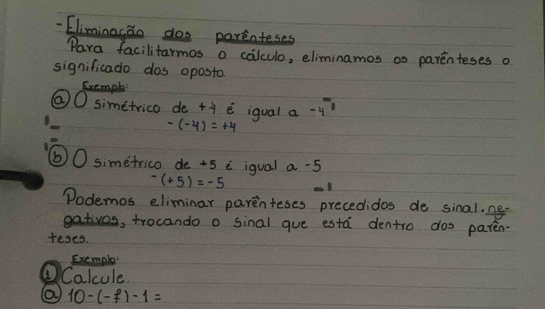 - Eliminação dos parênteses
Para facilitarmos o cálculo, eliminamos os parênteses o
significado dos oposto.
Exemplo:
ⓐ O simétrico de +4 é igual a -4
-(-4) = +4
ⓑ O simétrico de +5 é igual a -5
-(+5) = -5
Podemos eliminar parênteses precedidos de sinal ne-
gativos, trocando o sinal que está dentro dos parên-
teses.
Exemplo:
① Calcule
ⓐ 10-(-7)-1=